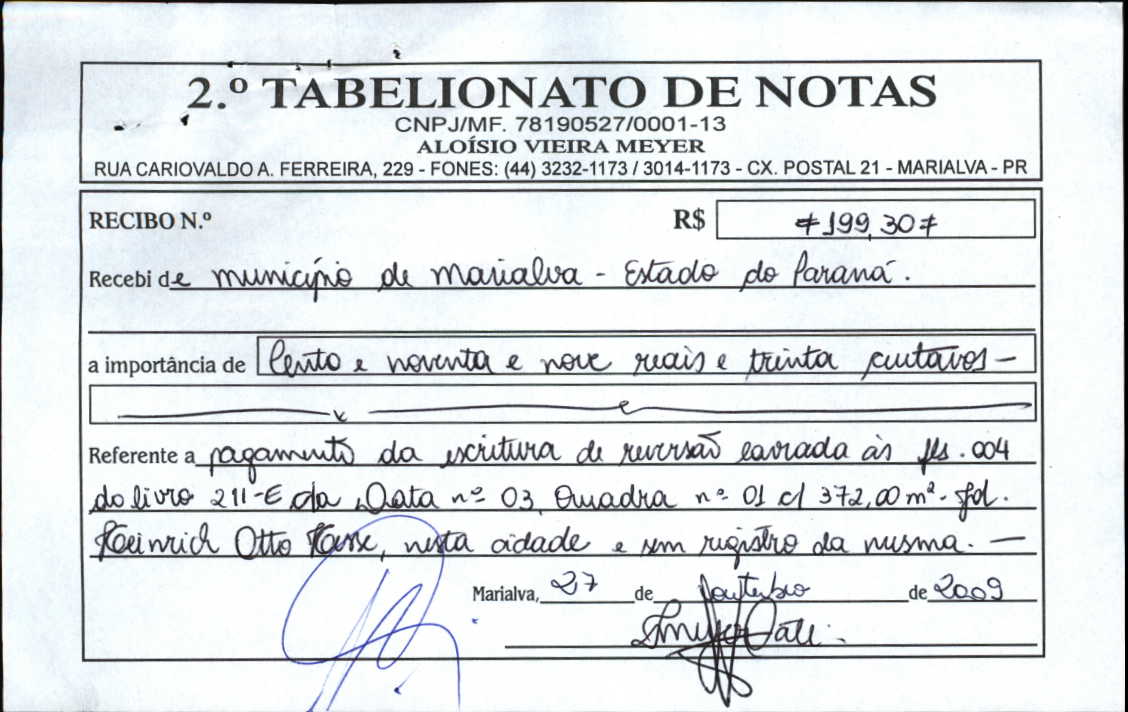 2.º TABELIONATO DE NOTAS
CNPJ/MF. 78190527/0001-13
ALOÍSIO VIEIRA MEYER
RUA CARIOVALDO A. FERREIRA, 229 - FONES: (44) 3232-1173 / 3014-1173 - CX. POSTAL 21 - MARIALVA - PR
RECIBO N.º R$ ≠199,30≠
Recebi de município de Marialva - Estado do Paraná.
a importância de Cento e noventa e nove reais e trinta centavos -
Referente a pagamento da escritura de reversão lavrada às fls. 004
do livro 211-E da Data nº 03, Quadra nº 01 c/ 372,00 m² - Jd.
Heinrich Otto, nesta cidade e sem registro da mesma. -
Marialva, 27 de outubro de 2009